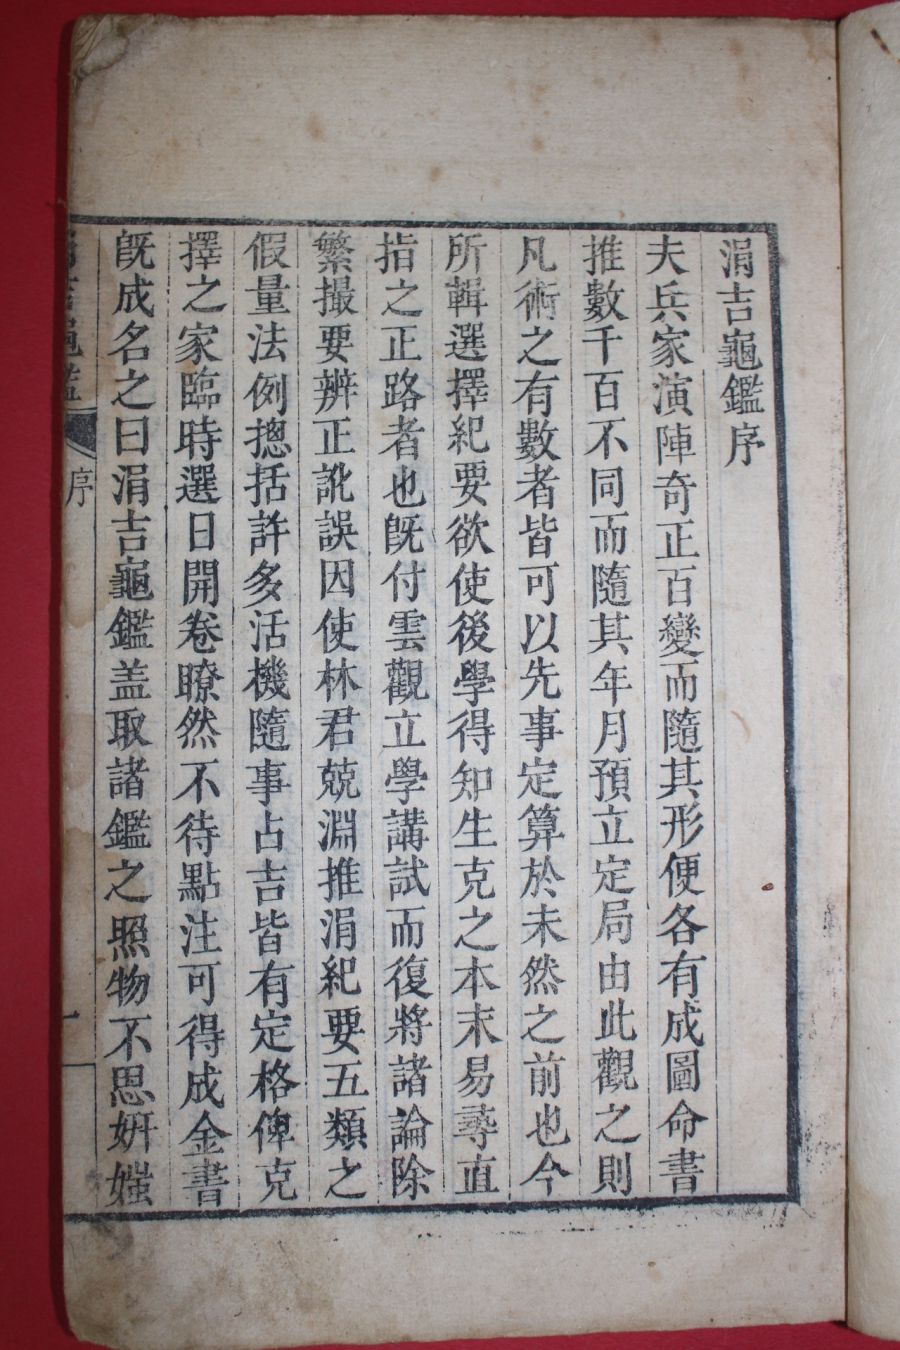 涓吉龜鑑序
夫兵家演陣奇正百變而隨其形便各有成圖命書
推數千百不同而隨其年月預立定局由此觀之則
凡術之有數者皆可以先事定算於未然之前也今
所輯選擇紀要欲使後學得知生克之本末易尋直
指之正路者也旣付雲觀立學講試而復將諸論除
繁撮要辨正訛誤因使林君兢淵推涓紀要五類之
假量法例摠括許多活機隨事占吉皆有定格俾克
擇之家臨時選日開卷瞭然不待點注可得成金書
旣成名之曰涓吉龜鑑盖取諸鑑之照物不思姸媸
涓吉龜鑑
序
一